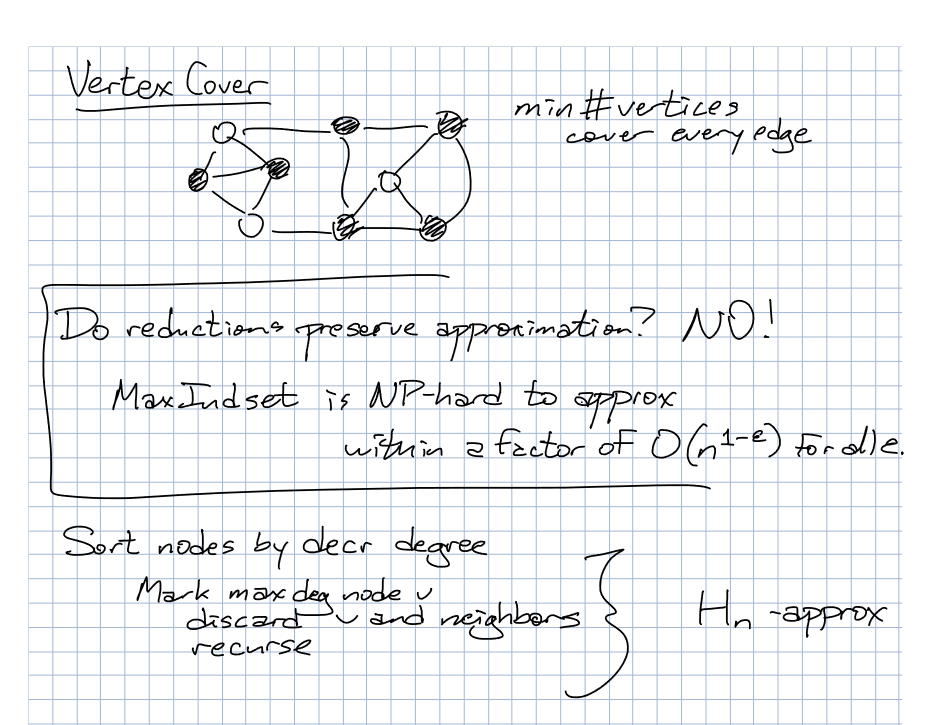 Vertex Cover
min # vertices
cover every edge
Do reductions preserve approximation? NO!
MaxIndset is NP-hard to approx
within a factor of O(n^{1-ε}) for all ε.
Sort nodes by decr degree
Mark max deg node v
discard v and neighbors
recurse
H_n-approx